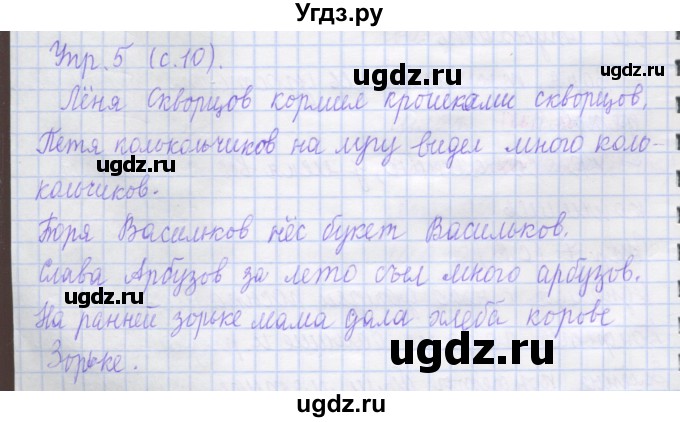 Угдз.ру
Упр. 5 (с. 10).
ugdz.ru
Лёня Скворцов кормил крошками скворцов.
ugdz.ru
Петя колокольчиков на лугу видел много коло-
ugdz.ru
кольчиков.
Боря Васильков нёс букет Васильков.
ugdz.ru
Слава Арбузов за лето съел много арбузов.
ugdz.ru
На ранней зорьке мама дала хлеба корове
ugdz.ru
Зорьке.
ugdz.ru